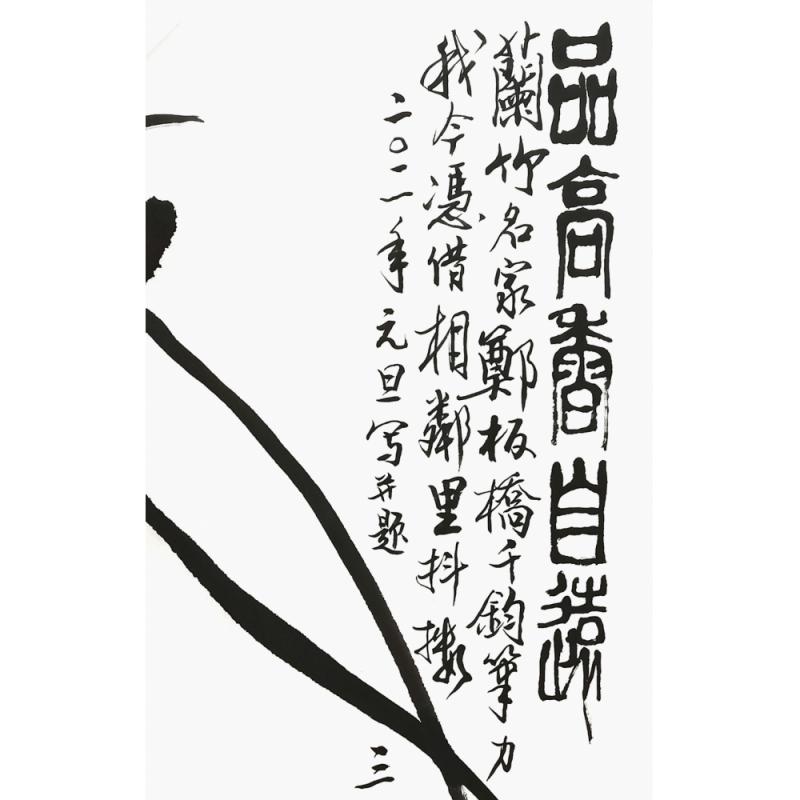 品高香自遠
蘭竹名家鄭板橋千鈞筆力
我今憑借相鄰里抖擻
二〇二一年元旦写并题
三